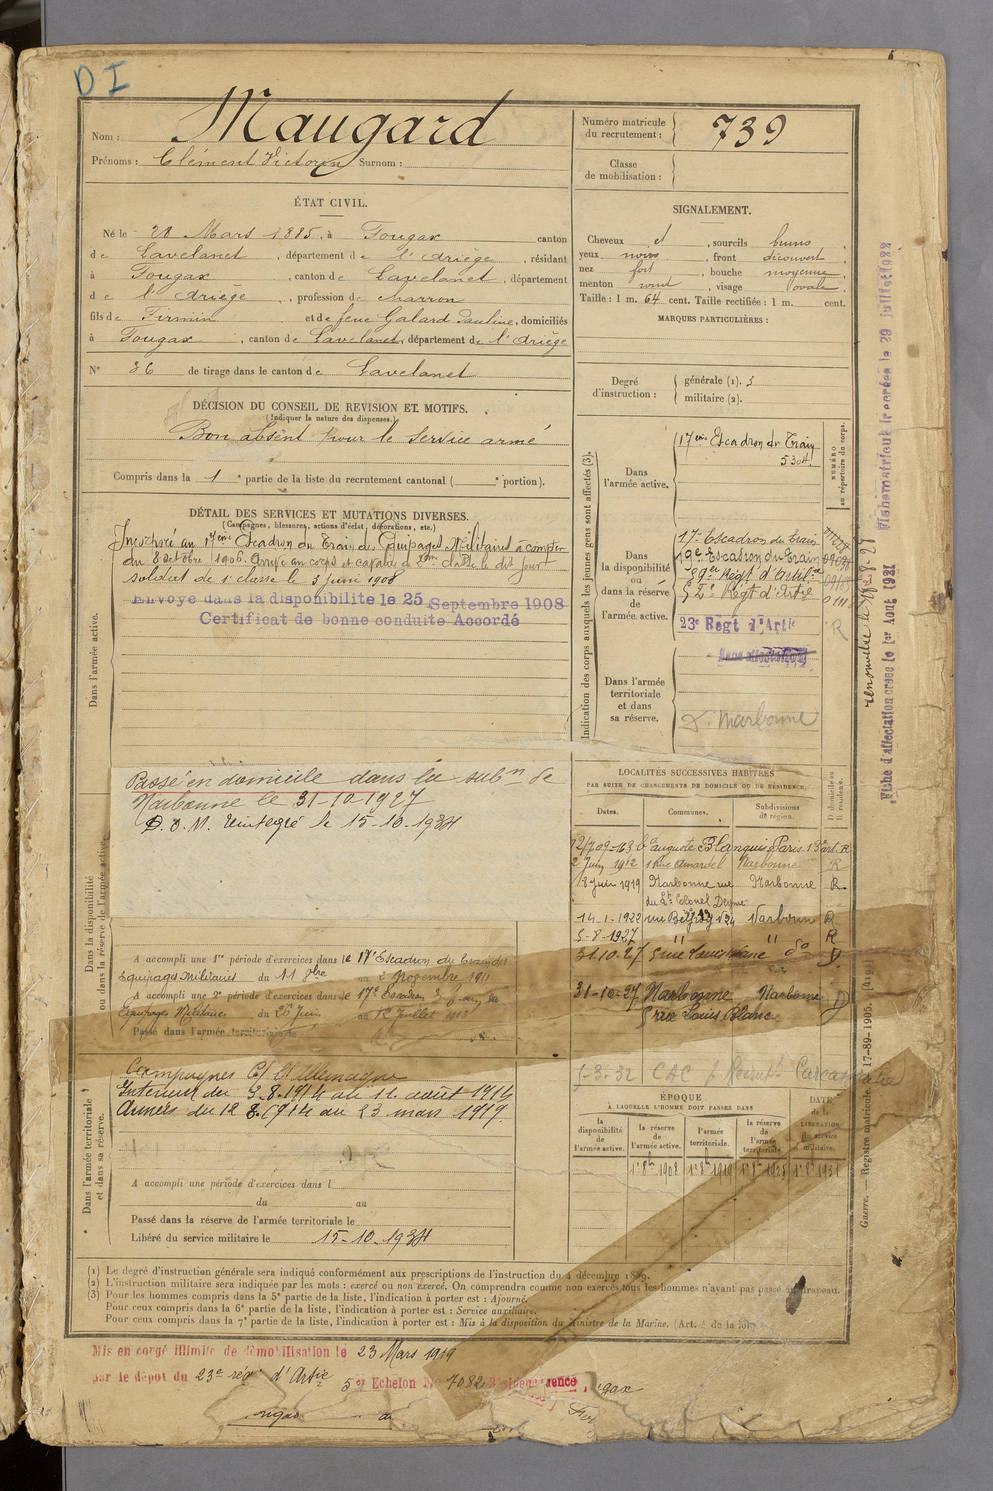 DI
Nom : Maugard
Prénoms : Clément Victorin Surnom :
Numéro matricule du recrutement : 739
Classe de mobilisation :
ÉTAT CIVIL.
Né le 28 Mars 1885, à Fougax canton
de Lavelanet, département de l'Ariège, résidant
à Fougax, canton de Lavelanet, département
de l'Ariège, profession de
fils de Firmin et de feue Galard Pauline, domiciliés
à Fougax, canton de Lavelanet, département de l'Ariège
N° 36 de tirage dans le canton de Lavelanet
DÉCISION DU CONSEIL DE REVISION ET MOTIFS.
(Indiquer la nature des dispenses.)
Bon absent pour le service armé
Compris dans la 1e partie de la liste du recrutement cantonal ( e portion).
DÉTAIL DES SERVICES ET MUTATIONS DIVERSES.
(Campagnes, blessures, actions d'éclat, décorations, etc.)
Incorporé au 17ème Escadron du Train des Equipages Militaires à compter
du 8 octobre 1906. Arrivé au corps et cavalier de 2ème classe le dit jour
soldat de 1e classe le 3 juin 1908
Envoyé dans la disponibilité le 25 Septembre 1908
Certificat de bonne conduite Accordé
Dans l'armée active.
Passé en domicile dans la subon de
Narbonne le 31-10-1927
D.O.M. réintégré le 15-10-1934
Dans la disponibilité
ou dans la réserve de l'armée active.
A accompli une 1re période d'exercices dans le 17e Escadron du Train des
Equipages Militaires du 11 8bre au 2 Novembre 1911
A accompli une 2e période d'exercices dans le 17e Escadron
Equipages Militaire du 26 Juin au 12 Juillet
Passé dans l'armée territoriale le
Campagnes C/ l'Allemagne
Intérieur du 3.8.1914 au 11 août 1914
Armées du 12 8.1914 au 23 mars 1919.
Dans l'armée territoriale
et dans sa réserve.
A accompli une période d'exercices dans l
du au
Passé dans la réserve de l'armée territoriale le
Libéré du service militaire le 15-10-1934
SIGNALEMENT.
Cheveux et, sourcils bruns,
yeux noirs, front découvert,
nez fort, bouche moyenne,
menton rond, visage ovale.
Taille : 1 m. 64 cent. Taille rectifiée : 1 m. cent.
MARQUES PARTICULIÈRES :
Degré d'instruction :
générale (1). 3
militaire (2).
Indication des corps auxquels les jeunes gens sont affectés (3).
NUMÉRO au répertoire du corps.
Dans l'armée active.
17ème Escadron du Train
Dans la disponibilité ou dans la réserve de l'armée active.
17e Escadron du Train
19e Escadron du Train
Régt d'Artie
23e Régt d'Artie
Sans affectation
R
Dans l'armée territoriale et dans sa réserve.
Narbonne
LOCALITÉS SUCCESSIVES HABITÉES
PAR SUITE DE CHANGEMENTS DE DOMICILE OU DE RÉSIDENCE.
Dates. Communes. Subdivisions de région. D domicile ou R résidence.
auguste Blanqui Paris 13e art. R
2 Juin 1912 Narbonne R
8 Juin 1919 Narbonne rue Narbonne R
du Lt Colonel Deyme
14-1-1922 Narbonne R
5-8-1927 " " R
31.10.27 5 rue do D
31-10-27 Narbonne Narbonne D
5 rue Louis Blanc
1-3-32 CAC
ÉPOQUE
À LAQUELLE L'HOMME DOIT PASSER DANS
la disponibilité de l'armée active. la réserve de l'armée active. l'armée territoriale. la réserve de l'armée territoriale. DATE de la LIBÉRATION du service militaire.
1er 8bre 1908 1er 8bre 1919 1er 8bre 1925 1er 8bre 1931
(1) Le degré d'instruction générale sera indiqué conformément aux prescriptions de l'instruction du 4 décembre 1889.
(2) L'instruction militaire sera indiquée par les mots : exercé ou non exercé. On comprendra comme non exercés tous les hommes n'ayant pas passé au drapeau.
(3) Pour les hommes compris dans la 5e partie de la liste, l'indication à porter est : Ajourné.
Pour ceux compris dans la 6e partie de la liste, l'indication à porter est : Service auxiliaire.
Pour ceux compris dans la 7e partie de la liste, l'indication à porter est : Mis à la disposition du Ministre de la Marine. (Art. 4 de la loi
Mis en congé illimité de démobilisation le 23 Mars 1919
par le dépôt du 23e rég d'Artie 5e Echelon No 7082
Guerre. — Registre matricule.
Fiche matricule recréée le 29 juillet 1922
Fiche d'affectation créée le 1er Aout 1921